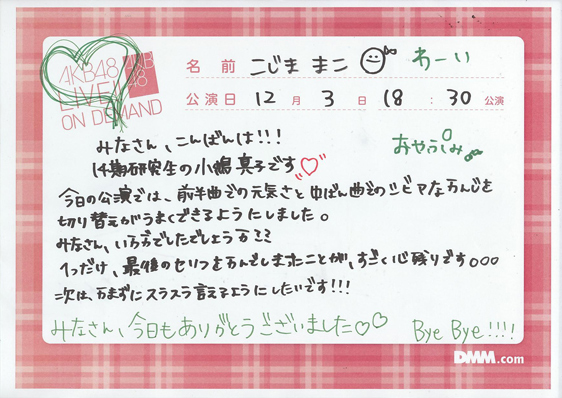 AKB48
LIVE!!
ON DEMAND
AKB
48
名前 こじま まこ わーい
公演日 12月3日 18:30 公演
みなさん、こんばんは!!!
おやぷみ
14期研究生の小嶋真子です♡
今日の公演では、前半曲での元気さと中ばん曲でのシビアなかんじを
切り替えがうまくできるようにしました。
みなさん、いかがでしたでしょうか??
1つだけ、最後のセリフをかんでしまったことが、すごく心残りです。。。
次は、かまずにスラスラ言えるようにしたいです!!!
みなさん、今日もありがとうございました♡♡ Bye Bye!!!!
DMM.com